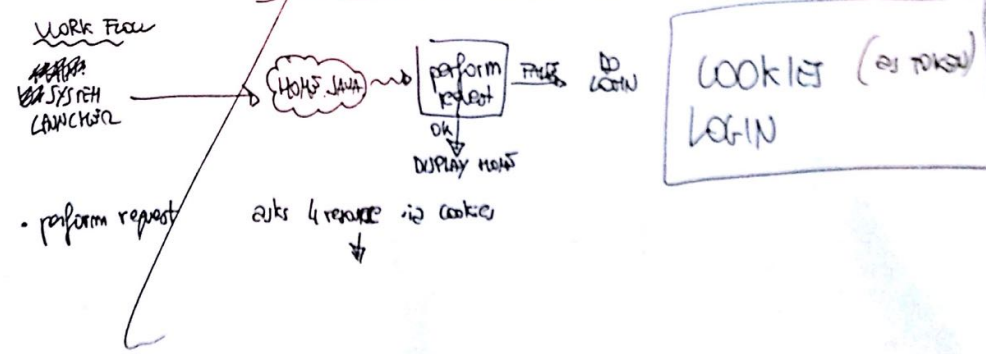 WORK FLOW
SYSTEM
LAUNCHER
HOME.JAVA
perform
request
FAILS
DO
LOGIN
OK
DISPLAY HOME
COOKIES (as TOKEN)
LOGIN
• perform request
asks 4 resource via cookies